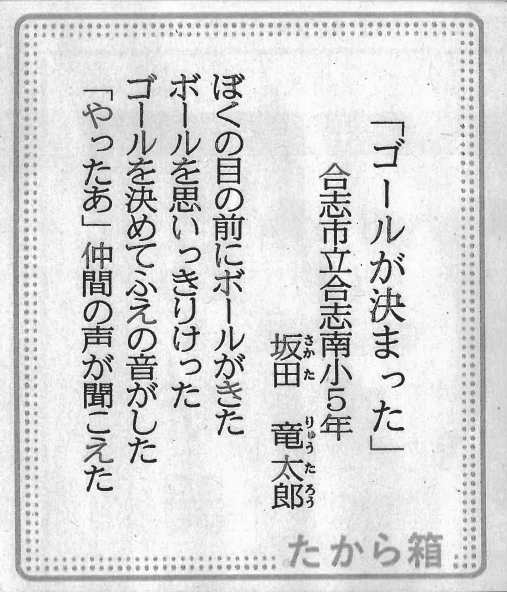 「ゴールが決まった」
合志市立合志南小５年
坂田　竜太郎
さかた　りゅうたろう
ぼくの目の前にボールがきた
ボールを思いっきりけった
ゴールを決めてふえの音がした
「やったあ」仲間の声が聞こえた
たから箱